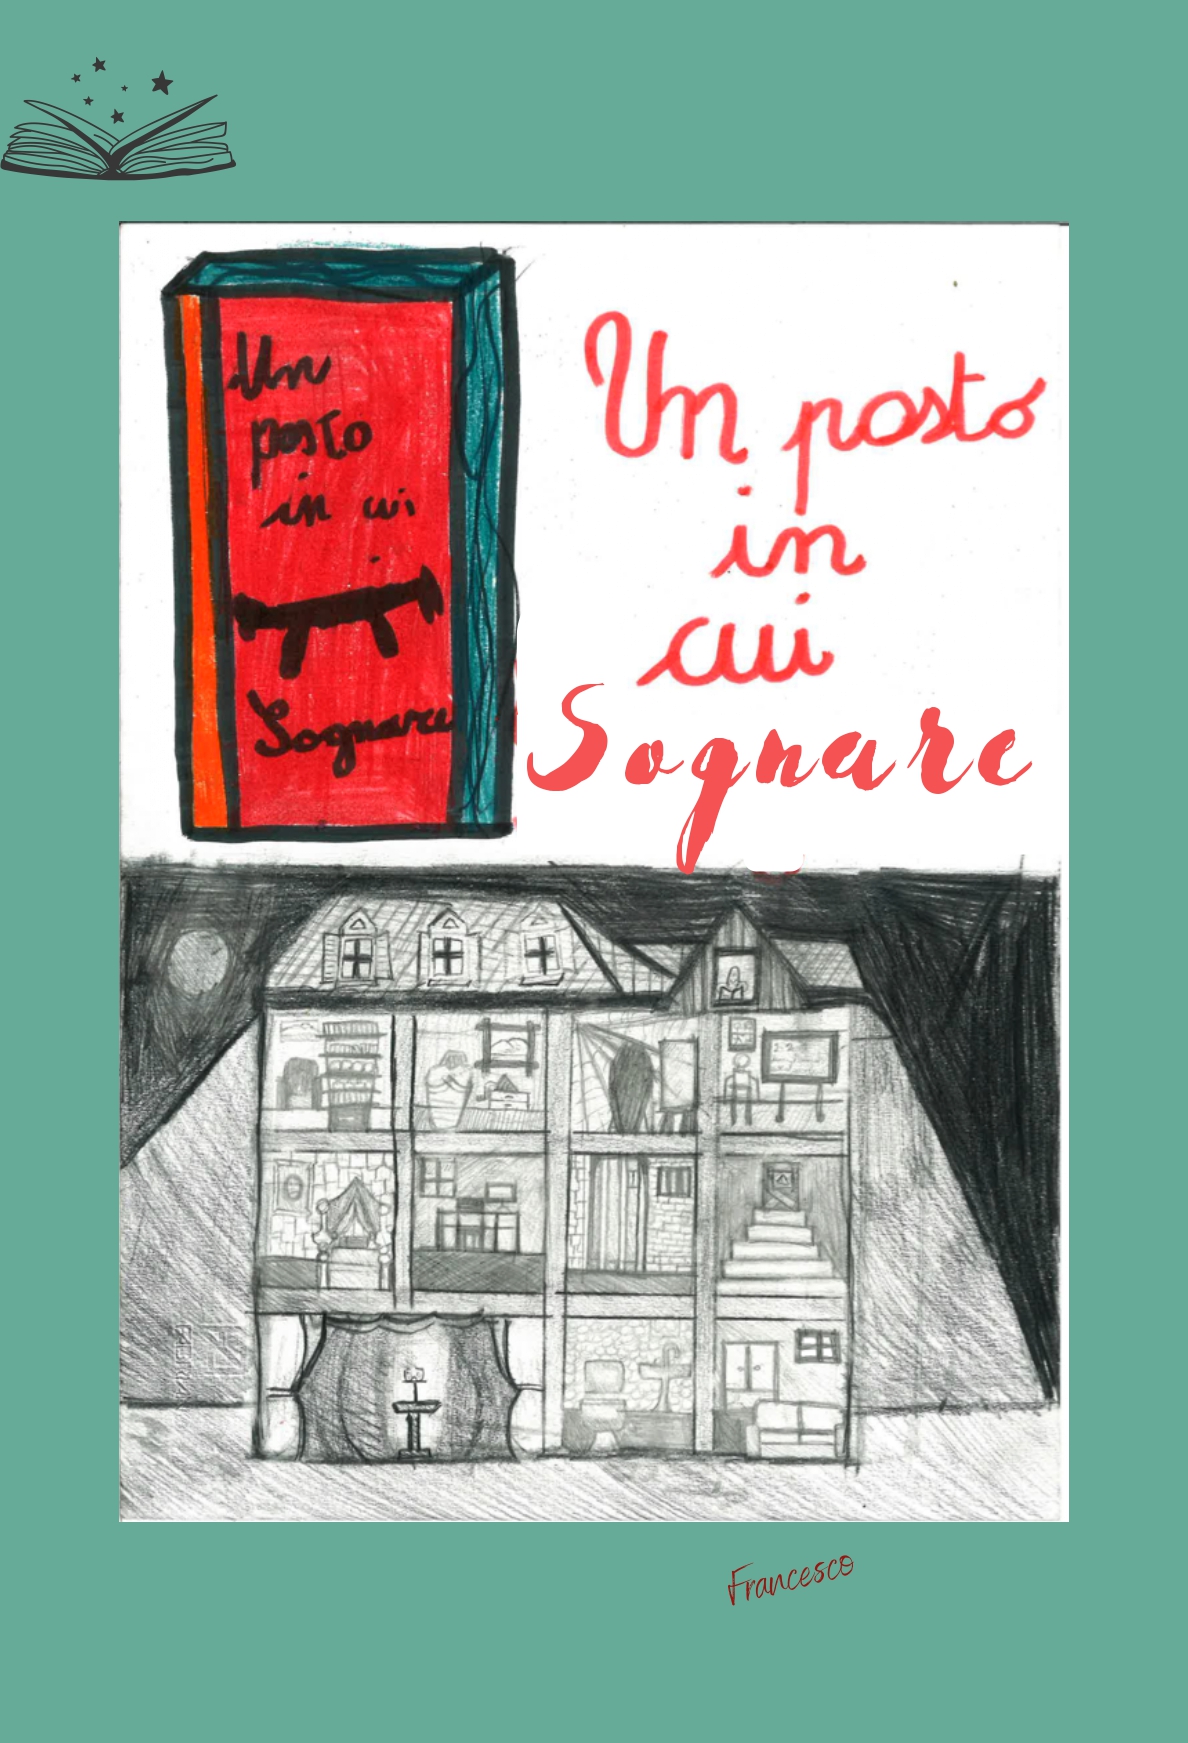 Un
posto
in cui
Sognare
Un posto
in
cui
Sognare
Francesco